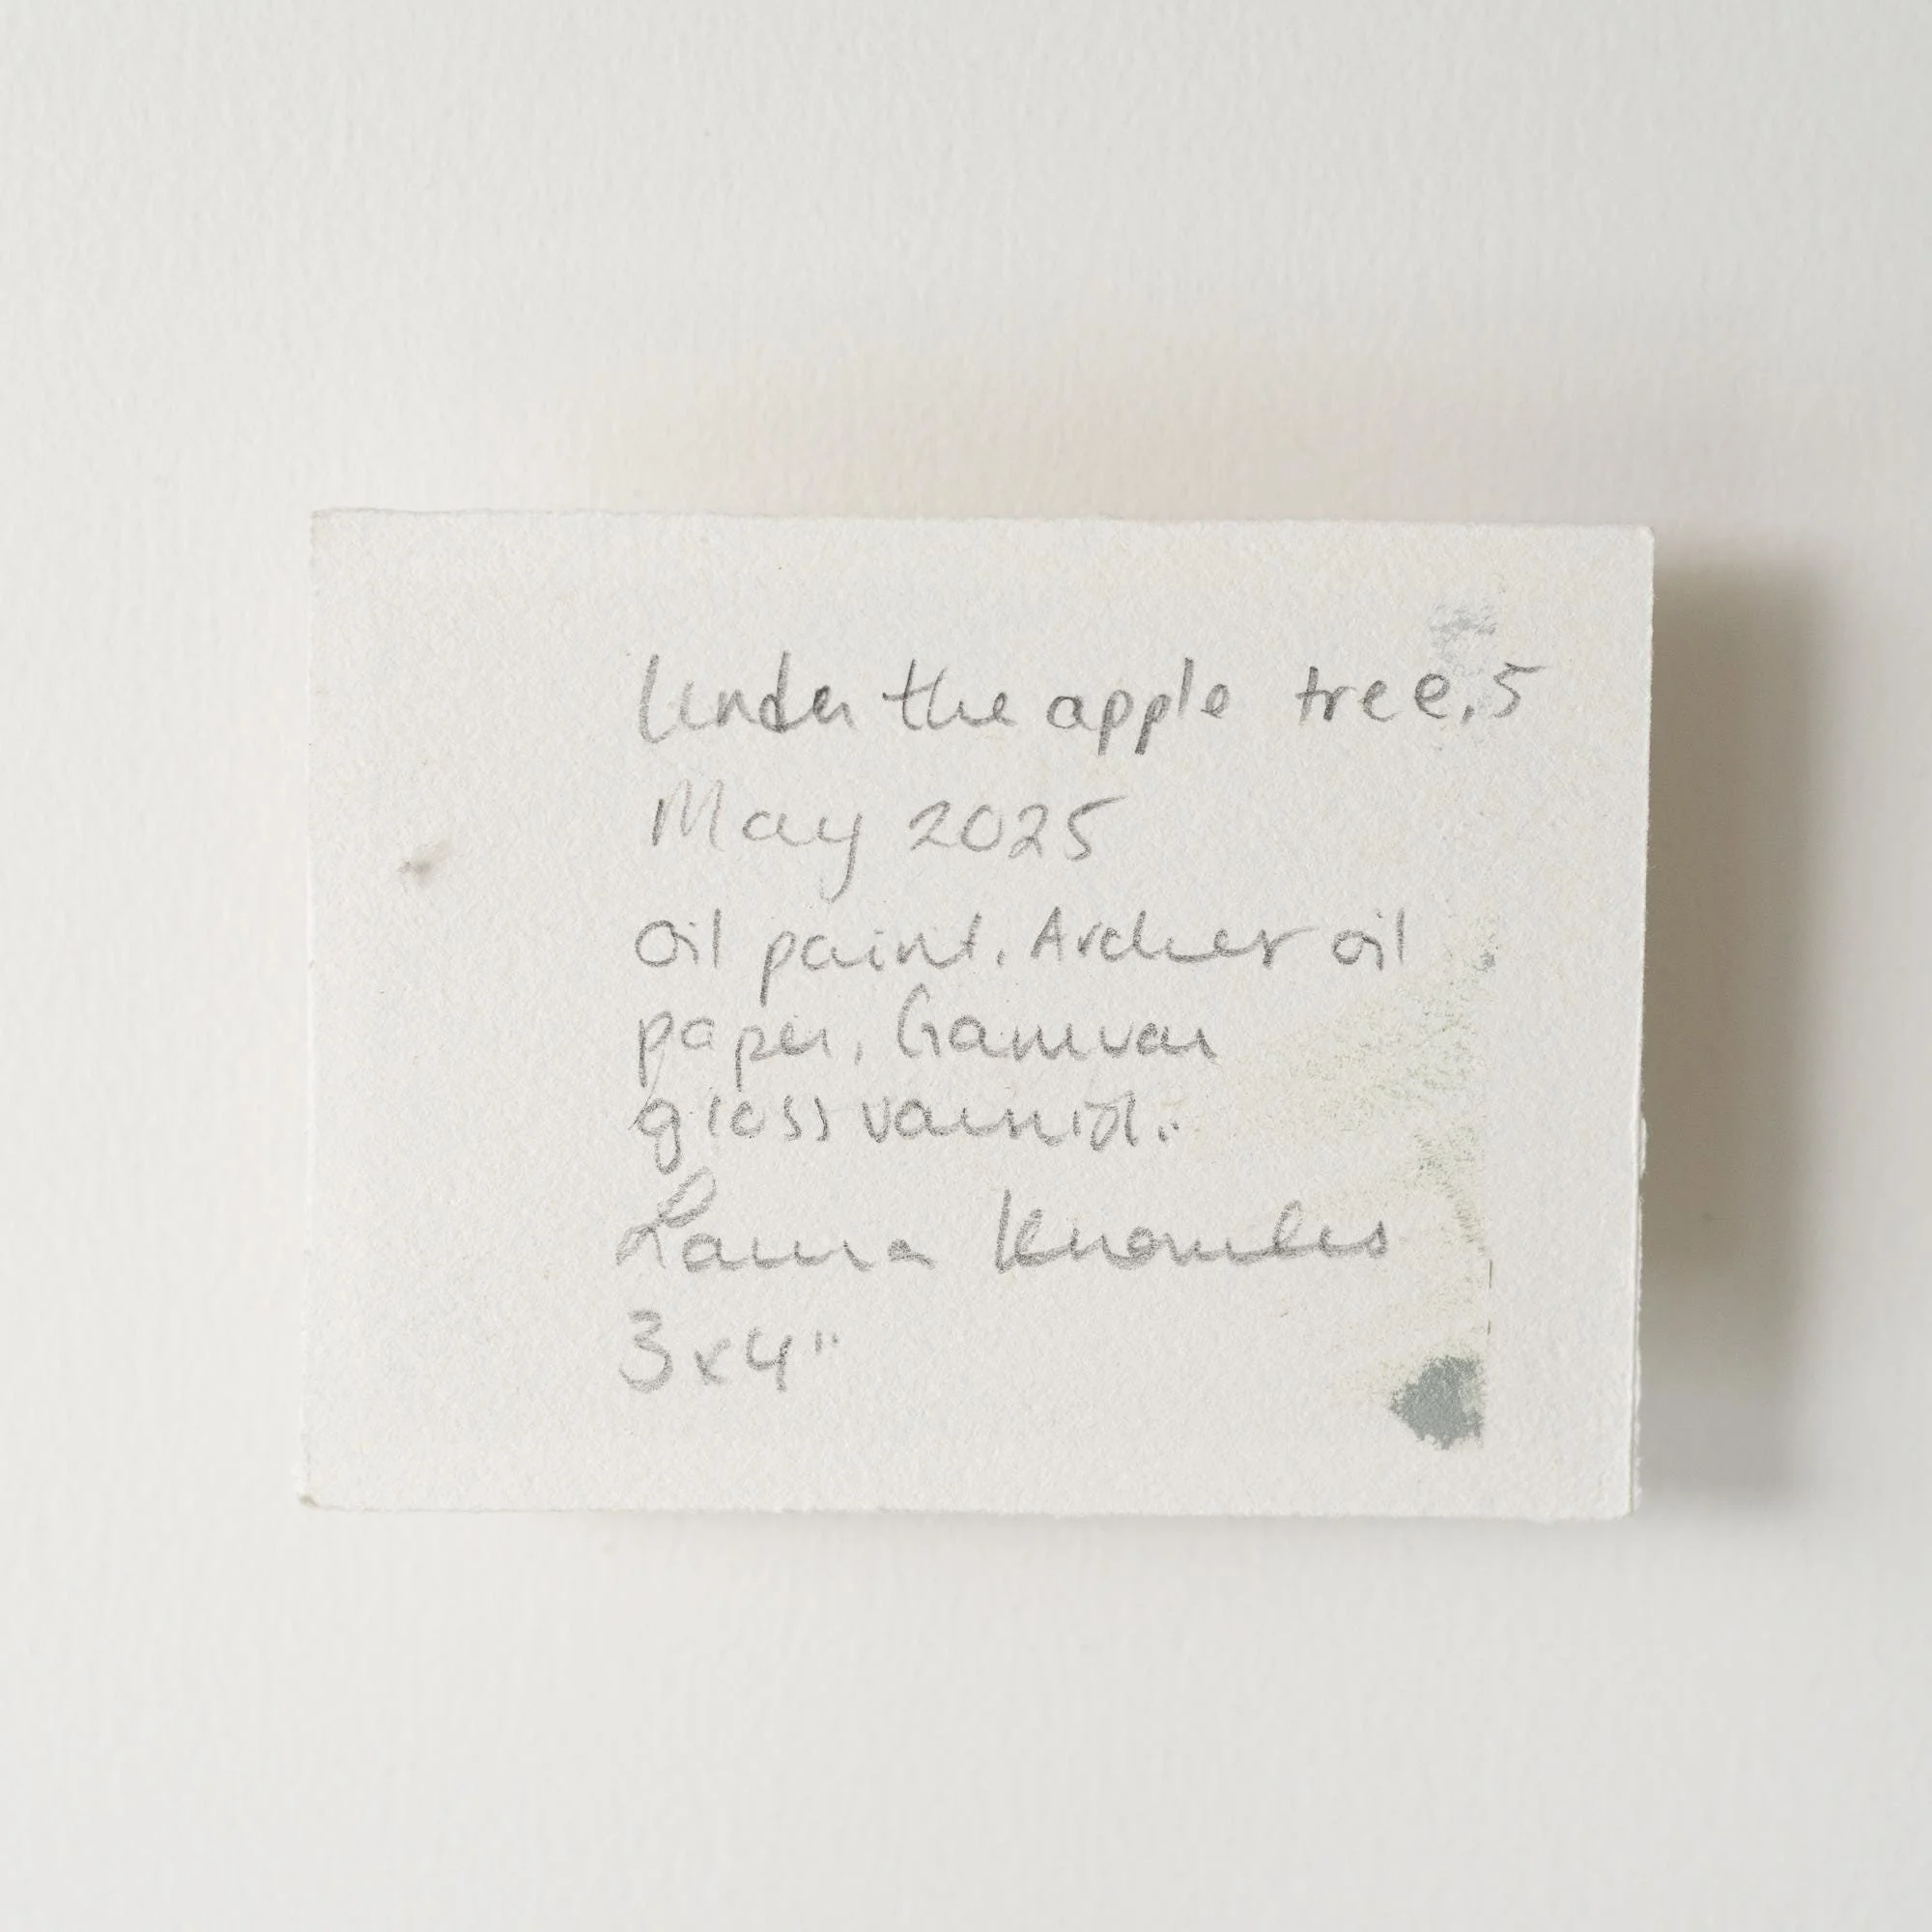 Under the apple tree.5
May 2025
Oil paint. Archer oil
paper, Gamvar
gloss varnish.
Laura Knowles
3x4"